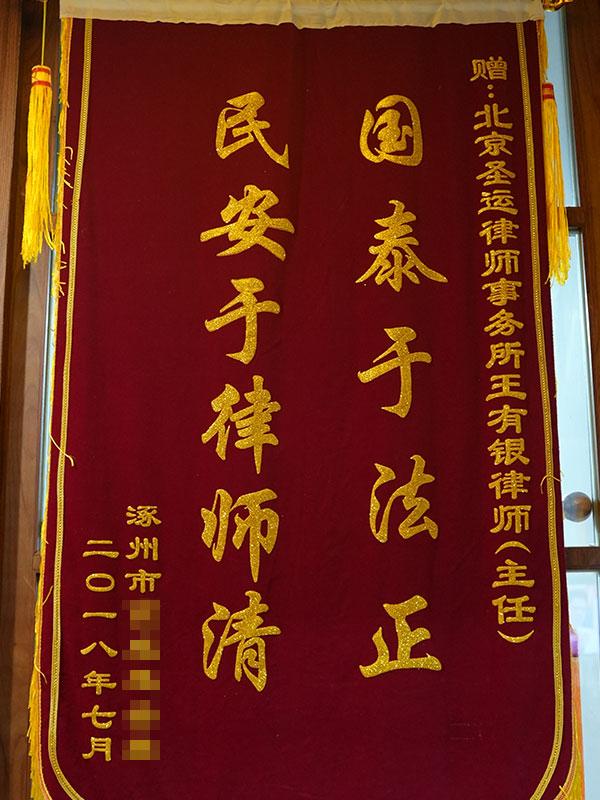 赠：北京圣运律师事务所王有银律师（主任）
国泰于法正
民安于律师清
涿州市
二〇一八年七月